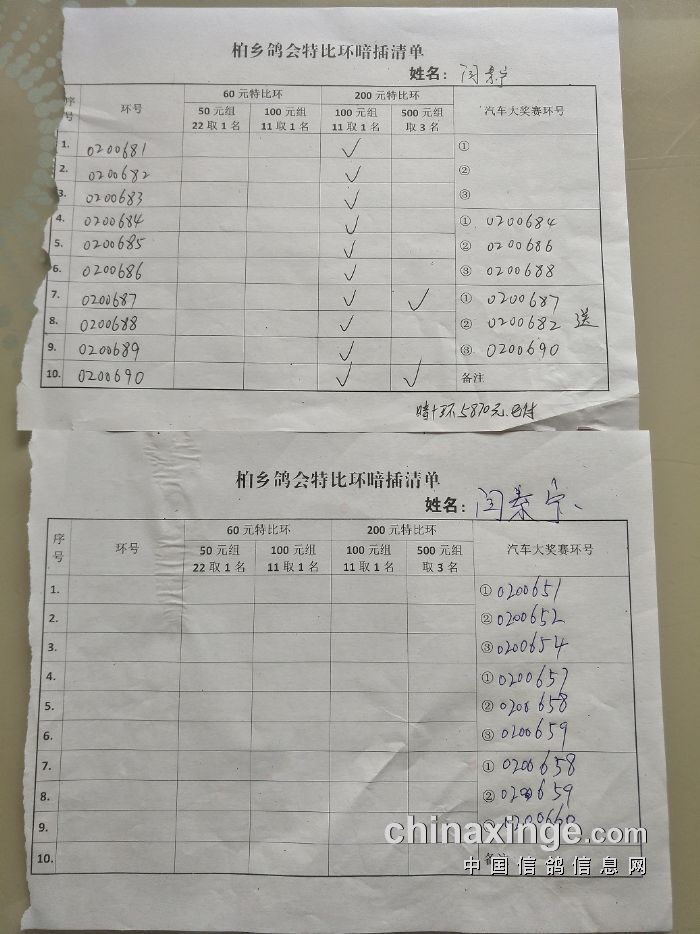 柏乡鸽会特比环暗插清单
姓名：闫泰宁
序号 环号 60元特比环 200元特比环 汽车大奖赛环号
50元组 22取1名 100元组 11取1名 100元组 11取1名 500元组 取3名
1. 0200681 ✓ ①
2. 0200682 ✓ ②
3. 0200683 ✓ ③
4. 0200684 ✓ ① 0200684
5. 0200685 ✓ ② 0200686
6. 0200686 ✓ ③ 0200688
7. 0200687 ✓ ✓ ① 0200687
8. 0200688 ✓ ② 0200682 送
9. 0200689 ✓ ③ 0200690
10. 0200690 ✓ ✓ 备注
暗+环5870元.已付
柏乡鸽会特比环暗插清单
姓名：闫泰宁、
序号 环号 60元特比环 200元特比环 汽车大奖赛环号
50元组 22取1名 100元组 11取1名 100元组 11取1名 500元组 取3名
1. ① 0200651
2. ② 0200652
3. ③ 0200654
4. ① 0200657
5. ② 0200658
6. ③ 0200659
7. ① 0200658
8. ② 0200659
9. 0200660
10. 备注
chinaxinge.com
中国信鸽信息网